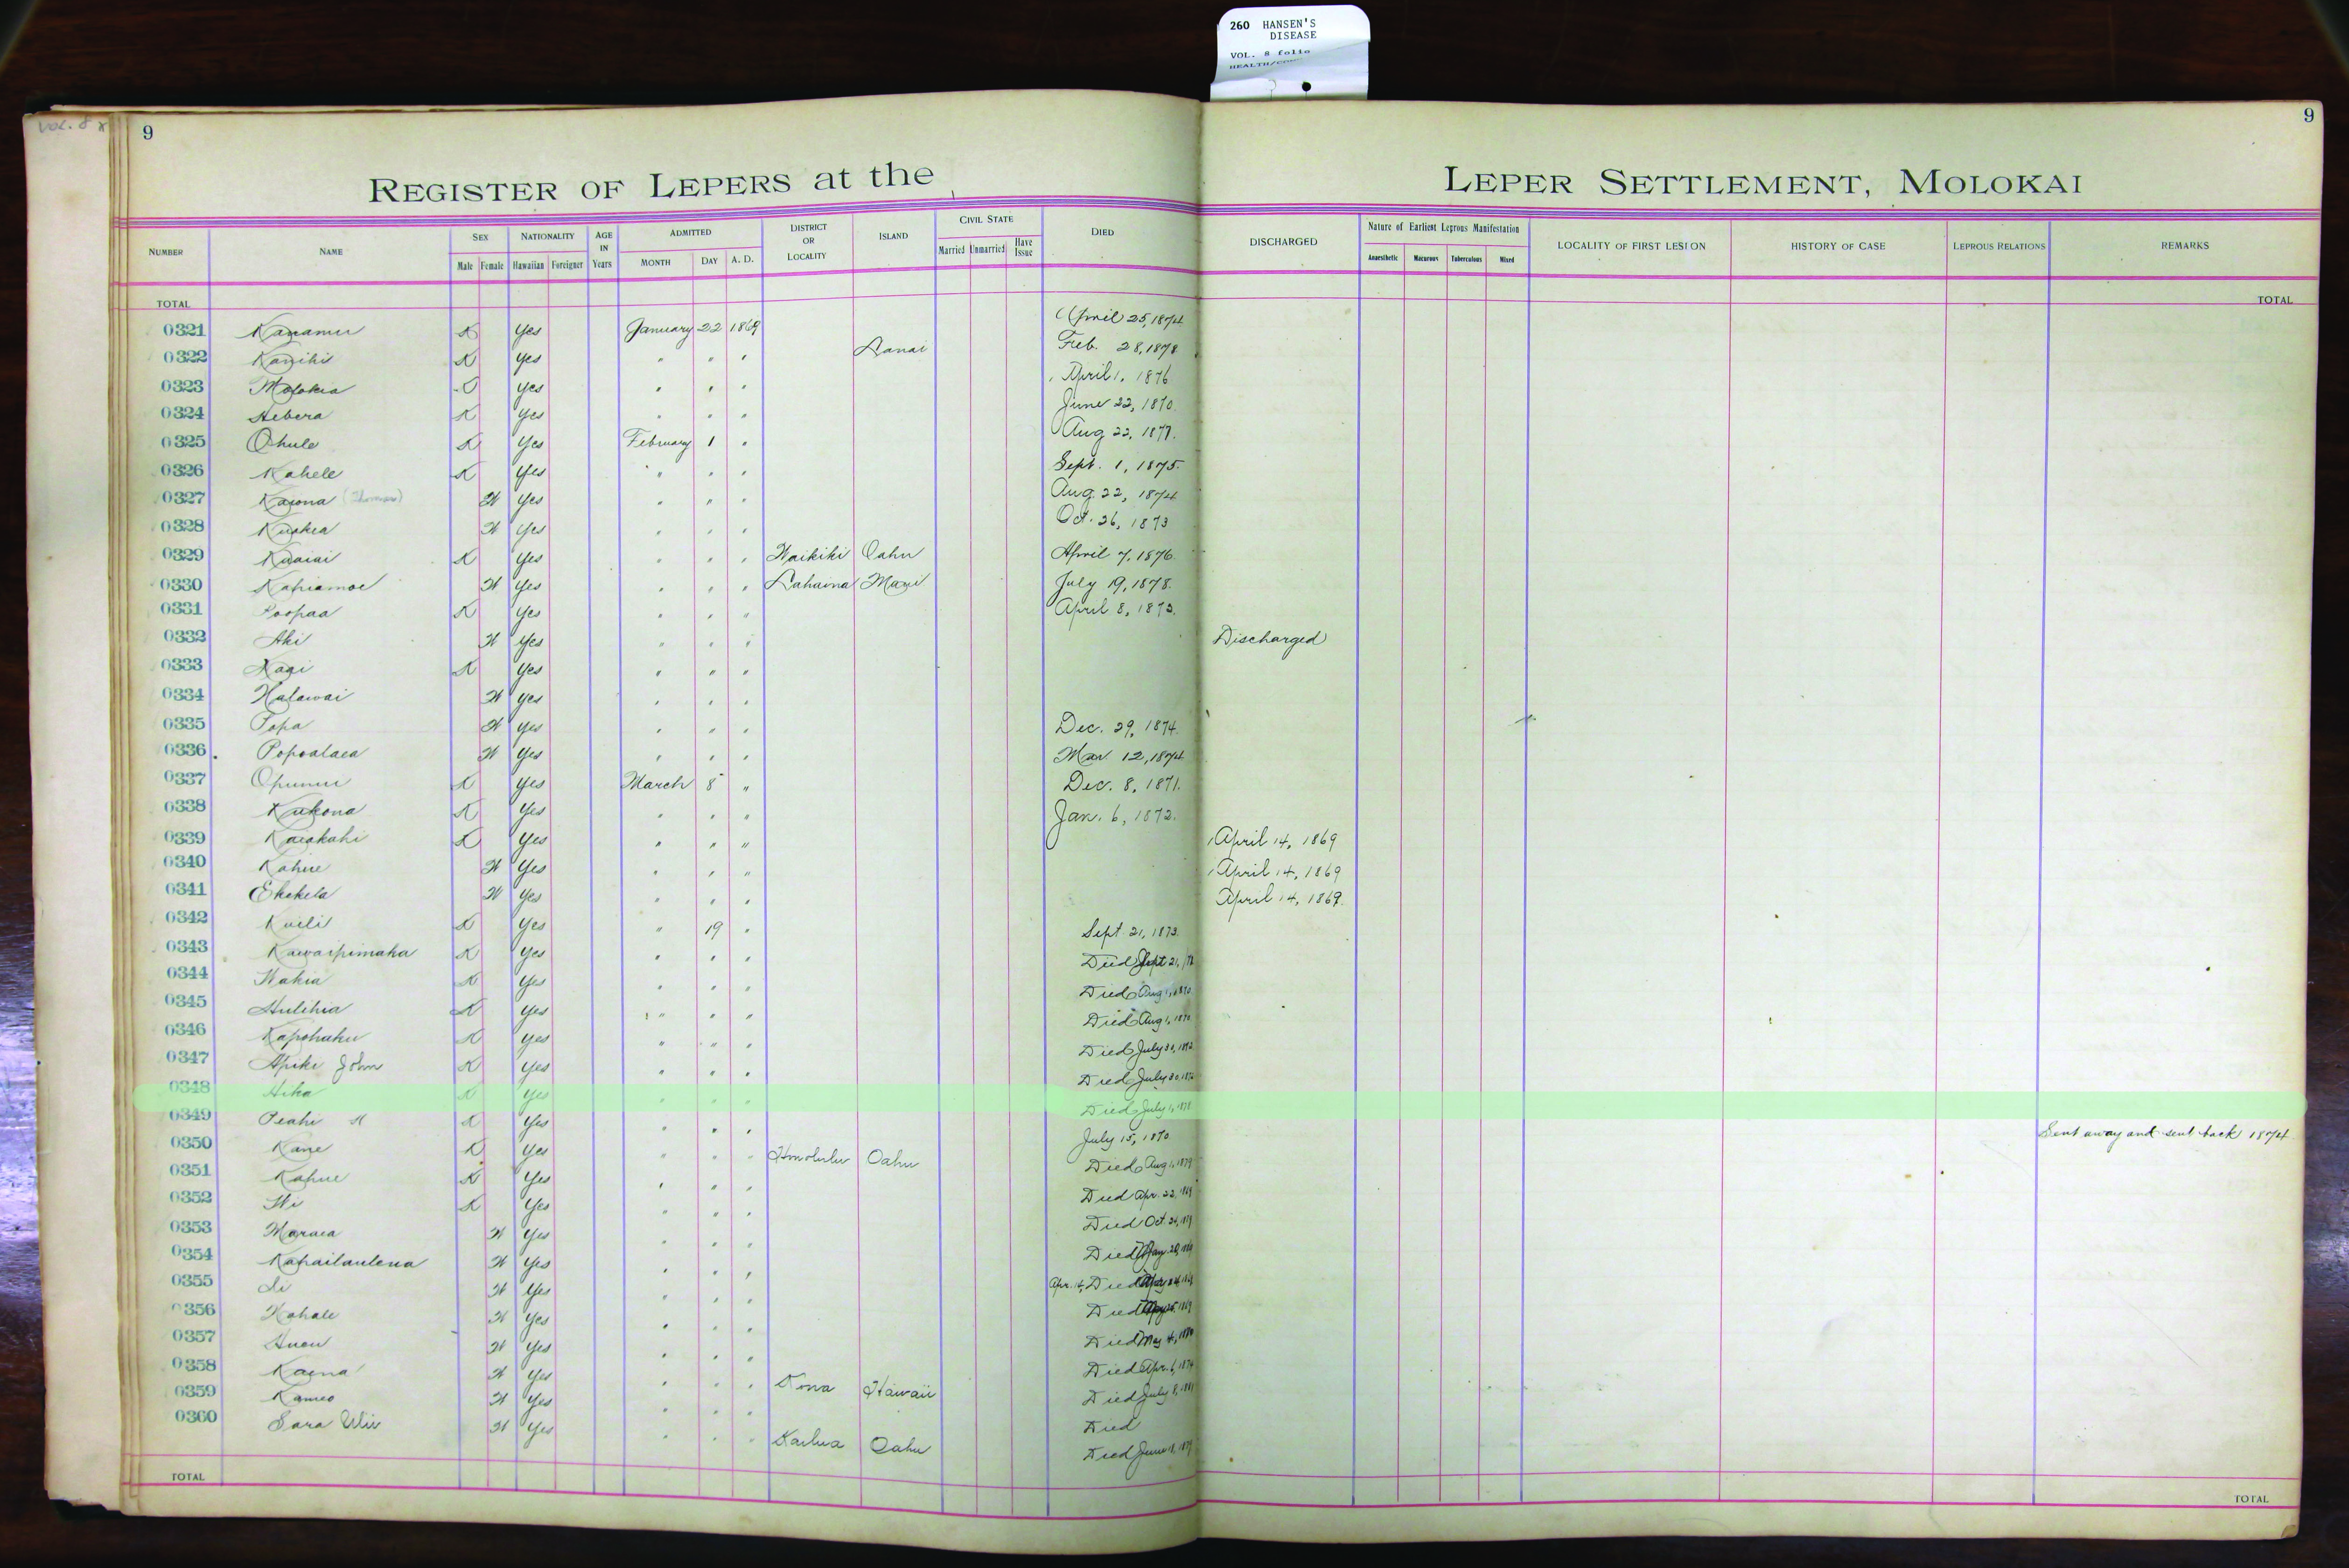 260 HANSEN'S
DISEASE
VOL. 8 folio
VOL. 8
9
9
REGISTER OF LEPERS at the LEPER SETTLEMENT, MOLOKAI
NUMBER NAME SEX Male Female NATIONALITY Hawaiian Foreigner AGE IN Years ADMITTED MONTH DAY A. D. DISTRICT OR LOCALITY ISLAND CIVIL STATE Married Unmarried Have Issue DIED DISCHARGED Nature of Earliest Leprous Manifestation Anaesthetic Macurous Tuberculous Mixed LOCALITY OF FIRST LESION HISTORY OF CASE LEPROUS RELATIONS REMARKS
TOTAL TOTAL
0321 Kanamu K Yes January 22 1869 April 25, 1874
0322 Kanihi K Yes " " " Lanai Feb. 28, 1878
0323 Molokia Yes " " " April 1, 1876
0324 Hebera K Yes " " " June 22, 1870
0325 Ohule K Yes February 1 " Aug 22, 1877.
0326 Kahele K Yes " " " Sept. 1, 1875.
0327 Kaiona W Yes " " " Aug. 22, 1874
0328 W Yes " " " Oct. 26, 1873
0329 Kuaiai K Yes " " " Waikiki Oahu April 7, 1876
0330 Kapiamoe W Yes " " " Lahaina Maui July 19, 1878.
0331 Poopaa K Yes " " " April 8, 1873.
0332 Aki W Yes " " " Discharged
0333 K Yes " " "
0334 Halawai W Yes " " "
0335 Popa W Yes " " " Dec. 29, 1874.
0336 Popoalaea W Yes " " " Mar 12, 1874
0337 Opunui K Yes March 8 " Dec. 8, 1871.
0338 Kukona K Yes " " " Jan. 6, 1872.
0339 Kaiakahi K Yes " " " April 14, 1869
0340 Kahue W Yes " " " April 14, 1869
0341 Ekekela W Yes " " " April 14, 1869.
0342 Kuili K Yes " 19 " Sept. 21, 1873.
0343 Kawaipimaka K Yes " " " Died Sept 21,
0344 Wahia K Yes " " " Died Aug 1, 1870
0345 Hulihia K Yes " " " Died Aug 1, 1870
0346 Kapohaku K Yes " " " Died July 30,
0347 Apiki John K Yes " " " Died July 30,
0348 Aika K Yes " " " Died July 1,
0349 Peahi K Yes " " " July 15, 1870 Sent away and sent back 1874
0350 Kane K Yes " " " Honolulu Oahu Died Aug 1, 1879
0351 Kahue K Yes " " " Died Apr. 22, 1869
0352 K Yes " " " Died Oct. 24,
0353 Maraea W Yes " " " Died
0354 Kapailaulena W Yes " " " Apr. 14, Died
0355 Li W Yes " " " Died
0356 Kahale W Yes " " " Died May 4,
0357 W Yes " " " Died Apr. 6, 1874
0358 Kaena W Yes " " " Kona Hawaii Died July 8, 1881
0359 Kameo W Yes " " " Died
0360 Sara W Yes " " " Kailua Oahu Died June
TOTAL TOTAL